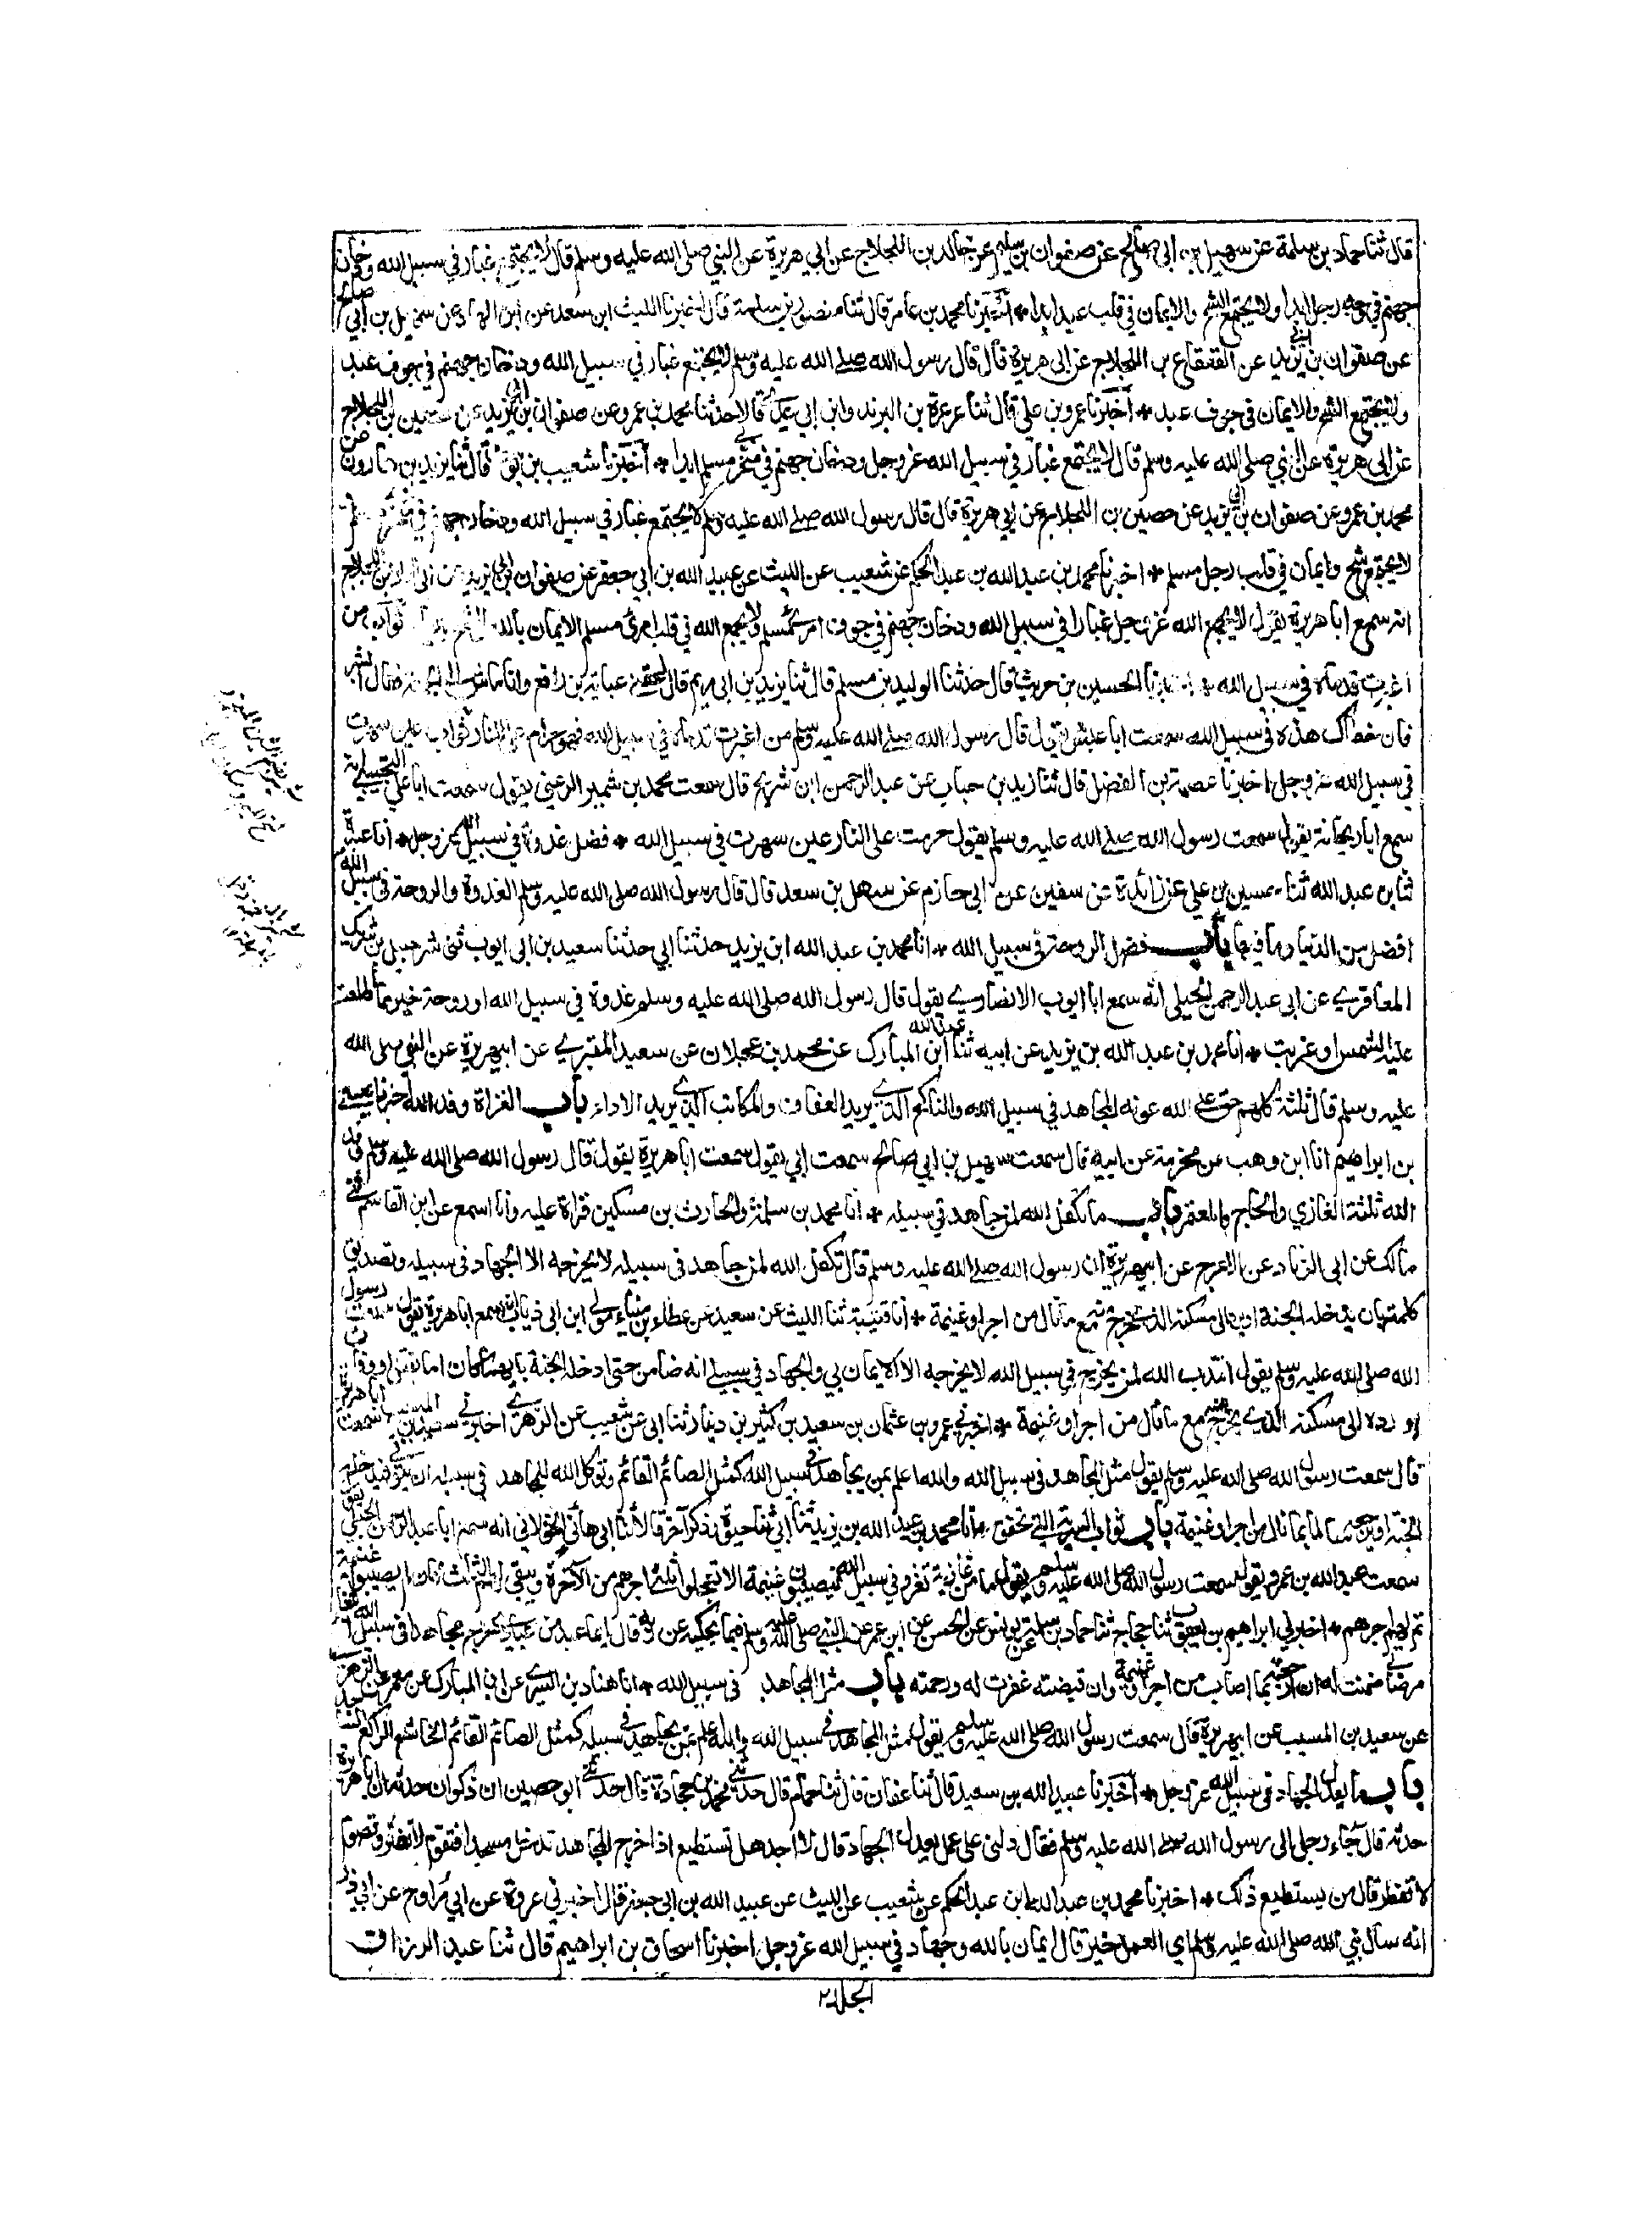 قال ثنا حماد بن سلمة عن سهيل بن ابي صالح عن صفوان بن سليم عن خالد بن اللجلاج عن ابي هريرة عن النبي صلى الله عليه وسلم قال لا يجتمع غبار في سبيل الله ودخان
جهنم في وجه رجل ابدا ولا يجتمع الشح والايمان في قلب عبد ابدا * اخبرنا محمد بن عامر قال ثنا منصور بن سلمة قال اخبرنا الليث ابن سعد عن ابن الهاد عن سهيل بن ابي صالح
عن صفوان بن ابي يزيد عن القعقاع بن اللجلاج عن ابي هريرة قال قال رسول الله صلے الله عليه وسلم لا يجتمع غبار في سبيل الله ودخان جهنم في جوف عبد
ولا يجتمع الشح والايمان في جوف عبد * اخبرنا عمرو بن علي قال ثنا عرعرة بن البرند وابن ابي عدي قالا حدثنا محمد بن عمرو عن صفوان بن ابي يزيد عن حصين بن اللجلاج
عن ابي هريرة عن النبي صلى الله عليه وسلم قال لا يجتمع غبار في سبيل الله عز وجل ودخان جهنم في منخري مسلم ابدا * اخبرنا شعيب بن يوسف قال ثنا يزيد بن هارون عن
محمد بن عمرو عن صفوان بن ابي يزيد عن حصين بن اللجلاج عن ابي هريرة قال قال رسول الله صلے الله عليه وسلم لا يجتمع غبار في سبيل الله ودخان جهنم في منخري مسلم
لا يجتمع شح وايمان في قلب رجل مسلم * اخبرنا محمد بن عبد الله بن عبد الحكم عن شعيب عن الليث عن عبيد الله بن ابي جعفر عن صفوان بن ابي يزيد عن ابي العلاء بن اللجلاج
انه سمع ابا هريرة يقول لا يجمع الله عز وجل غبارا في سبيل الله ودخان جهنم في جوف امرئ مسلم ولا يجمع الله في قلب امرئ مسلم الايمان بالله والشح جميعا ثواب من
اغبرت قدماه في سبيل الله * اخبرنا الحسين بن حريث قال حدثنا الوليد بن مسلم قال ثنا يزيد بن ابي مريم قال لحقني عباية بن رافع وانا ماش الى الجمعة فقال ابشر
فان خطاك هذه في سبيل الله سمعت ابا عبس يقول قال رسول الله صلے الله عليه وسلم من اغبرت قدماه في سبيل الله فهو حرام على النار ثواب عين سهرت
في سبيل الله عز وجل اخبرنا عصمة بن الفضل قال ثنا زيد بن حباب عن عبد الرحمن ابن شريح قال سمعت محمد بن شمير الرعيني يقول سمعت ابا علي التجيبي انه
سمع ابا ريحانة يقول سمعت رسول الله صلے الله عليه وسلم يقول حرمت على النار عين سهرت في سبيل الله * فضل غدوة في سبيل الله عز وجل * انا عبدة
ثنا بن عبد الله ثنا حسين بن علي عن زائدة عن سفين عن ابي حازم عن سهل بن سعد قال قال رسول الله صلى الله عليه وسلم الغدوة والروحة في سبيل الله
افضل من الدنيا وما فيها باب فضل الروحة في سبيل الله * انا محمد بن عبد الله ابن يزيد حدثنا ابي حدثنا سعيد بن ابي ايوب ثنى شرحبيل بن شريك
المعافري عن ابي عبد الرحمن الحبلي انه سمع ابا ايوب الانصاري يقول قال رسول الله صلى الله عليه وسلم غدوة في سبيل الله او روحة خير مما طلعت
عليه الشمس او غربت * انا محمد بن عبد الله بن يزيد عن ابيه ثنا عبد الله ابن المبارك عن محمد بن عجلان عن سعيد المقبري عن ابي هريرة عن النبي صلى الله
عليه وسلم قال ثلثة كلهم حق على الله عونه المجاهد في سبيل الله والناكح الذي يريد العفاف والمكاتب الذي يريد الاداء باب الغزاة وفد الله اخبرنا عيسى
بن ابراهيم انا ابن وهب عن مخرمة عن ابيه قال سمعت سهيل بن ابي صالح سمعت ابي يقول سمعت ابا هريرة يقول قال رسول الله صلى الله عليه وسلم وفد
الله ثلثة الغازي والحاج والمعتمر باب ما تكفل الله لمن جاهد في سبيله * انا محمد بن سلمة والحارث بن مسكين قراة عليه وانا اسمع عن ابن القاسم ثنى
مالك عن ابي الزناد عن الاعرج عن ابي هريرة ان رسول الله صلے الله عليه وسلم قال تكفل الله لمن جاهد في سبيله لا يخرجه الا الجهاد في سبيله وتصديق
كلمته بان يدخله الجنة او يرده الى مسكنه الذي خرج منه مع ما نال من اجر او غنيمة * انا قتيبة ثنا الليث عن سعيد عن عطاء بن ميناء مولى ابن ابي ذباب سمع ابا هريرة يقول سمعت رسول
الله صلى الله عليه وسلم يقول انتدب الله لمن يخرج في سبيل الله لا يخرجه الا الايمان بي والجهاد في سبيلي انه ضامن حتى ادخله الجنة بايهما كان اما بقتل او وفاة
او رده الى مسكنه الذي يخرج منه مع ما نال من اجر او غنيمة * اخبرني عمرو بن عثمان بن سعيد بن كثير بن دينار ثنا ابي عن شعيب عن الزهري اخبرني سعيد بن المسيب سمعت ابا هريرة
قال سمعت رسول الله صلى الله عليه وسلم يقول مثل المجاهد في سبيل الله والله اعلم بمن يجاهد في سبيل الله كمثل الصائم القائم وتوكل الله للمجاهد في سبيله ان يتوفيه فيدخله
الجنة او يرجعه سالما بما نال من اجر او غنيمة باب ثواب السرية التي تخفق * انا محمد بن عبد الله بن يزيد ثنا ابي ثنا حيوة وذكر آخر قالا ثنا ابي هانئ الخولاني انه سمع ابا عبد الرحمن الحبلي يقول
سمعت عبد الله بن عمرو يقول سمعت رسول الله صلى الله عليه وسلم يقول ما من غازية تغزو في سبيل الله فيصيبون غنيمة الا تعجلوا ثلثي اجرهم من الآخرة ويبقى لهم الثلث فان لم يصيبوا غنيمة
تم لهم اجرهم * اخبرني ابراهيم بن يعقوب ثنا حجاج ثنا حماد بن سلمة عن يونس عن الحسن عن ابن عمر عن النبي صلى الله عليه وسلم فيما يحكيه عن ربه قال ايما عبد من عبادي خرج مجاهدا في سبيل الله ابتغاء
مرضاتي ضمنت له ان ارجعه بما اصاب من اجر او غنيمة وان قبضته غفرت له ورحمته باب مثل المجاهد في سبيل الله * انا هناد بن السري عن ابن المبارك عن معمر عن الزهري
عن سعيد بن المسيب عن ابي هريرة قال سمعت رسول الله صلى الله عليه وسلم يقول مثل المجاهد في سبيل الله والله اعلم بمن يجاهد في سبيله كمثل الصائم القائم الخاشع الراكع الساجد
باب ما يعدل الجهاد في سبيل الله عز وجل * اخبرنا عبيد الله بن سعيد قال ثنا عفان قال ثنا همام قال حدثني محمد بن جحادة قال حدثني ابو حصين ان ذكوان حدثه ان ابا هريرة
حدثه قال جاء رجل الى رسول الله صلى الله عليه وسلم فقال دلني على عمل يعدل الجهاد قال لا اجد هل تستطيع اذا خرج المجاهد تدخل مسجدا فتقوم لا تفتر وتصوم
لا تفطر قال من يستطيع ذلك * اخبرنا محمد بن عبد الله ابن عبد الحكم عن شعيب عن الليث عن عبيد الله بن ابي جعفر قال اخبرني عروة عن ابي مراوح عن ابي ذر
انه سال نبي الله صلى الله عليه وسلم اي العمل خير قال ايمان بالله وجهاد في سبيل الله عز وجل اخبرنا اسحاق بن ابراهيم قال ثنا عبد الرزاق
الجلد٢